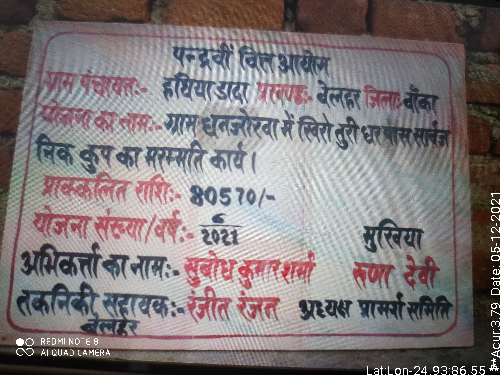 पन्द्रवीं वित्त आयोग
ग्राम पंचायत:- हथिया डाढा प्रखण्ड:- बेलहर जिला:- बाँका
योजना का नाम:- ग्राम धनजोरवा में खिरो तुरी घर पास सार्वज
निक कुप का मरम्मति कार्य।
प्राक्कलित राशि:- 80570/-
योजना संख्या/वर्ष:- 6/2021
मुखिया
अभिकर्त्ता का नाम:- सुबोध कुमार शर्मा रुणा देवी
तकनिकी सहायक:- रंजीत रंजन अध्यक्ष प्रामर्श समिति
बेलहर
REDMI NOTE 8
AI QUAD CAMERA
Lat:Lon-24.93:86.55 **Acur:3.79 Date: 05-12-2021